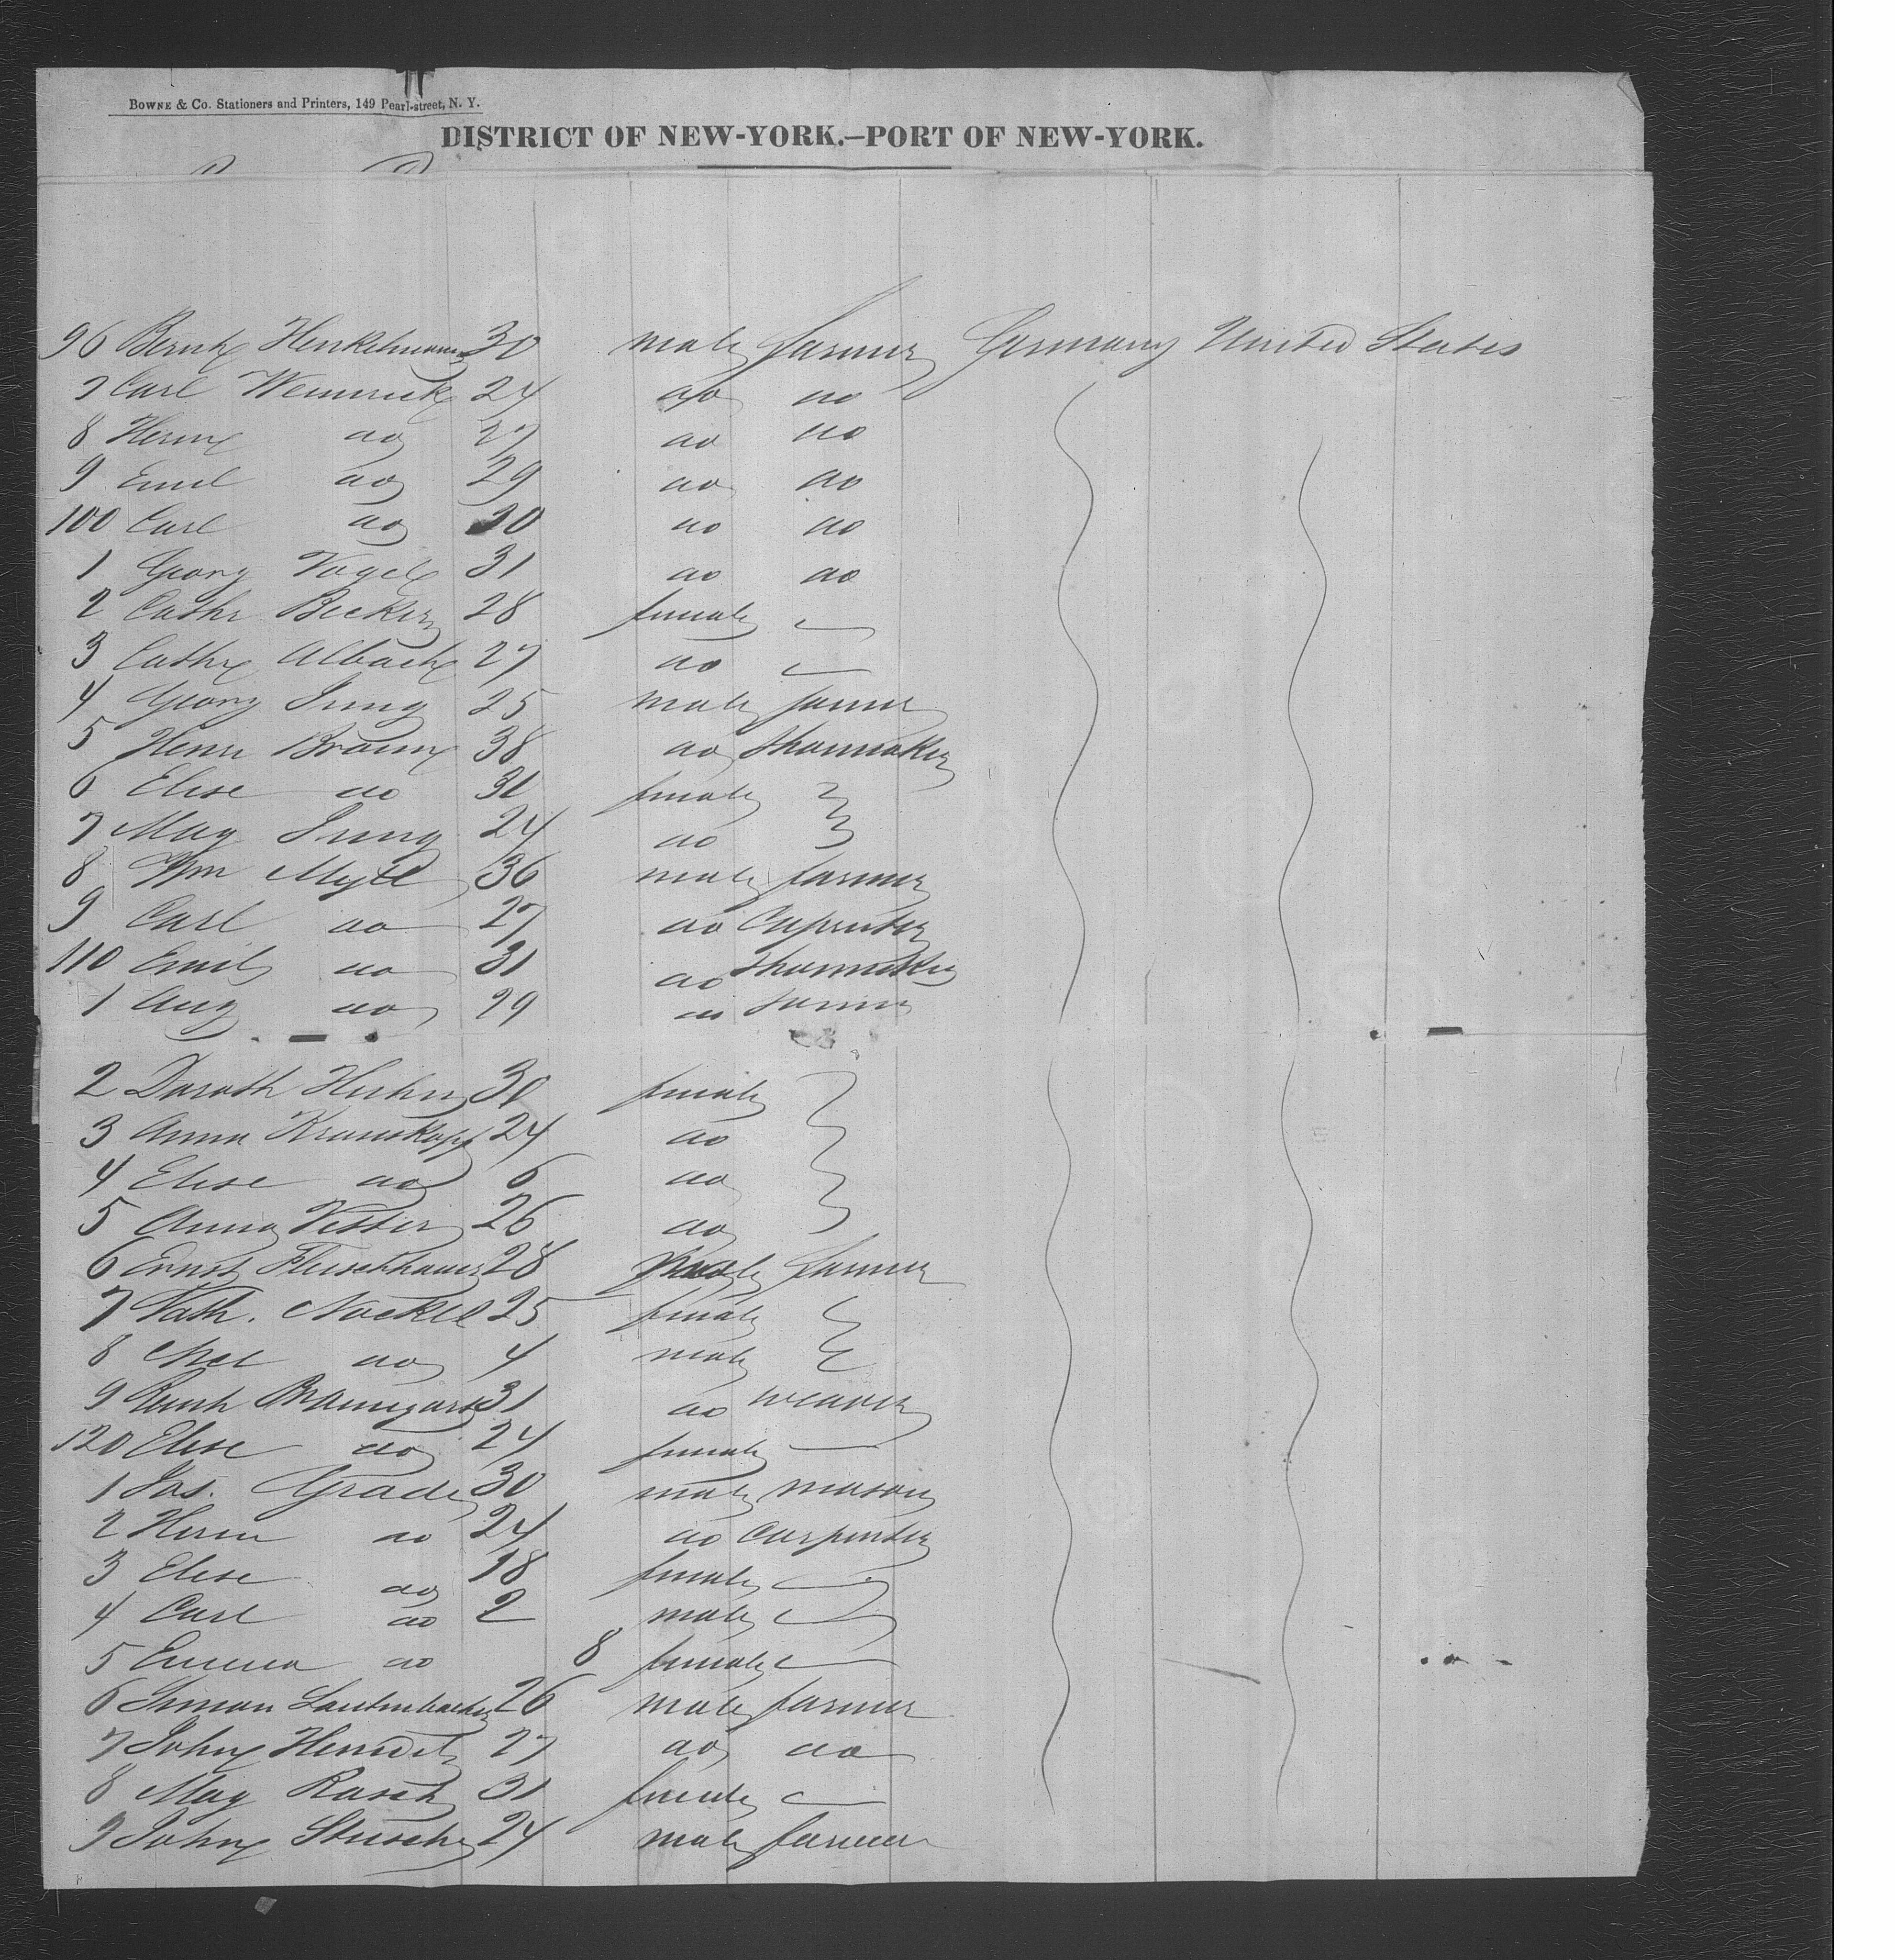 BOWNE & Co. Stationers and Printers, 149 Pearl-street, N. Y.
DISTRICT OF NEW-YORK.—PORT OF NEW-YORK.
96 Henkelmann 30 male farmer Germany United States
7 Carl 24 do do
8 Herm do 27 do do
9 Emil do 29 do do
100 Carl do do do
1 Georg Vogel 31 do do
2 Cathe Becker 28 female
3 Cathe Albach 27 do
4 Georg Jung 25 male farmer
5 Henri Braun 38 do Shoemaker
6 Elise do 30 female
7 Mag Jung 24 do
8 Wm 36 male farmer
9 Carl do 27 do Carpenter
110 Emil do 31 do Shoemaker
1 Aug do 29 do farmer
2 Doroth Huhn 30 female
3 Anna Krauskopf 24 do
4 Elise do 6 do
5 Anna Vetter 26 do
6 Ernst Fleischhauer 28 male farmer
7 Kath. Nockel 25 female
8 do 4 male
9 31 do weaver
120 Elise do 24 female
1 Jos. Grade 30 male mason
2 Herm do 24 do Carpenter
3 Elise do 18 female
4 Carl do 2 male
5 Emma do 8 female
6 Simon Lautenbacher 26 male farmer
7 John 27 do do
8 Mag Rasch 31 female
9 John 24 male farmer